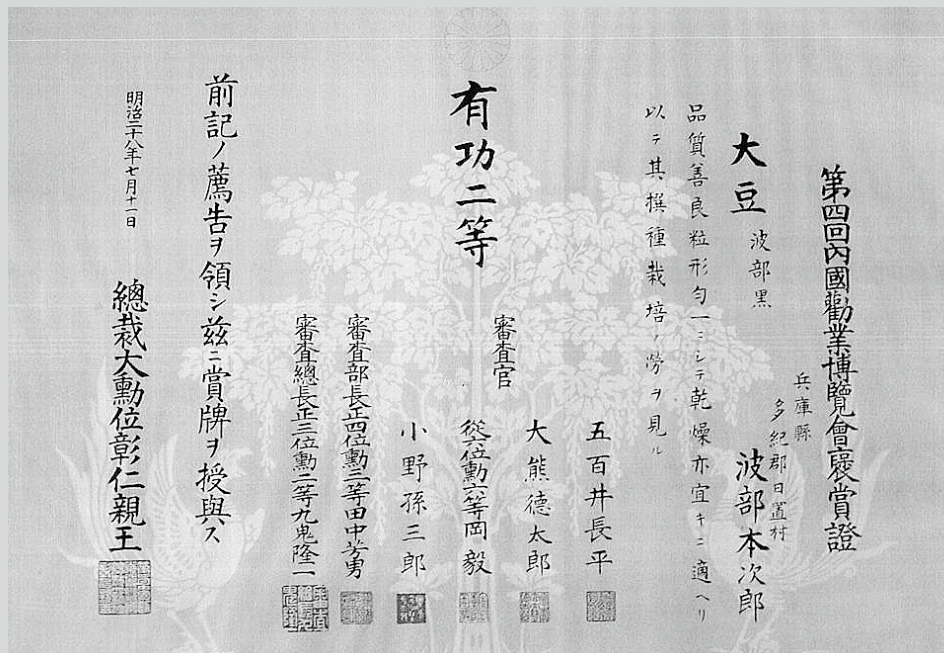 第四回內國勸業博覽會褒賞證
兵庫縣
多紀郡日置村
波部本次郎
大豆 波部黑
品質善良粒形匀一ニシテ乾燥亦宜キニ適ヘリ
以テ其撰種栽培ノ勞ヲ見ル
有功二等
審査官
五百井長平
大熊德太郎
從六位勳六等岡毅
小野孫三郎
審査部長正四位勳三等田中芳男
審査總長正三位勳二等九鬼隆一
前記ノ薦告ヲ領シ茲ニ賞牌ヲ授與ス
明治二十八年七月十一日
總裁大勳位彰仁親王